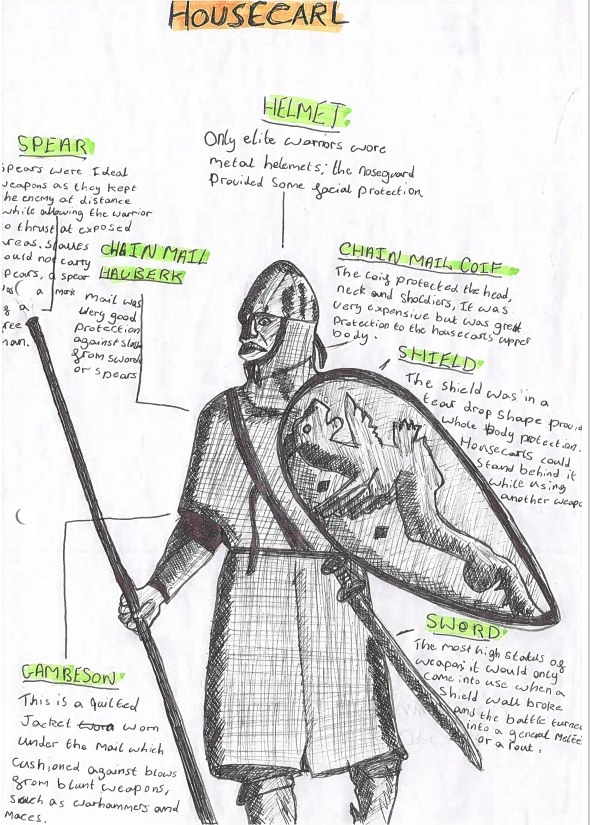 HOUSECARL
HELMET
Only elite warriors wore
metal helemets; the noseguard
Provided Some facial protection
SPEAR
spears were Ideal
weapons as they kept
the enemy at distance
while allowing the warrior
to thrust at exposed
areas. Slaues
could not carry
spears, a spear
was a mark
of a
free
man.
CHAIN MAIL
HAUBERK
mail was
very good
protection
against slash
from sword
or spears
CHAIN MAIL COIF
The coif protected the head,
neck and sholdiers, It was
very expensive but was great
protection to the housecarls upper
body.
SHIELD
The shield was in a
tear drop shape provid
whole body protection.
Housecarls could
Stand behind it
while using
another weapo
SWORD
The most high status of
weapan; it would only
come into use when a
Shield wall broke
and the battle turned
into a general Melee
or a rout.
GAMBESON
This is a quilted
Jacket worn
under the Mail which
cushioned against blows
from blunt weapons,
such as warhammers and
maces.